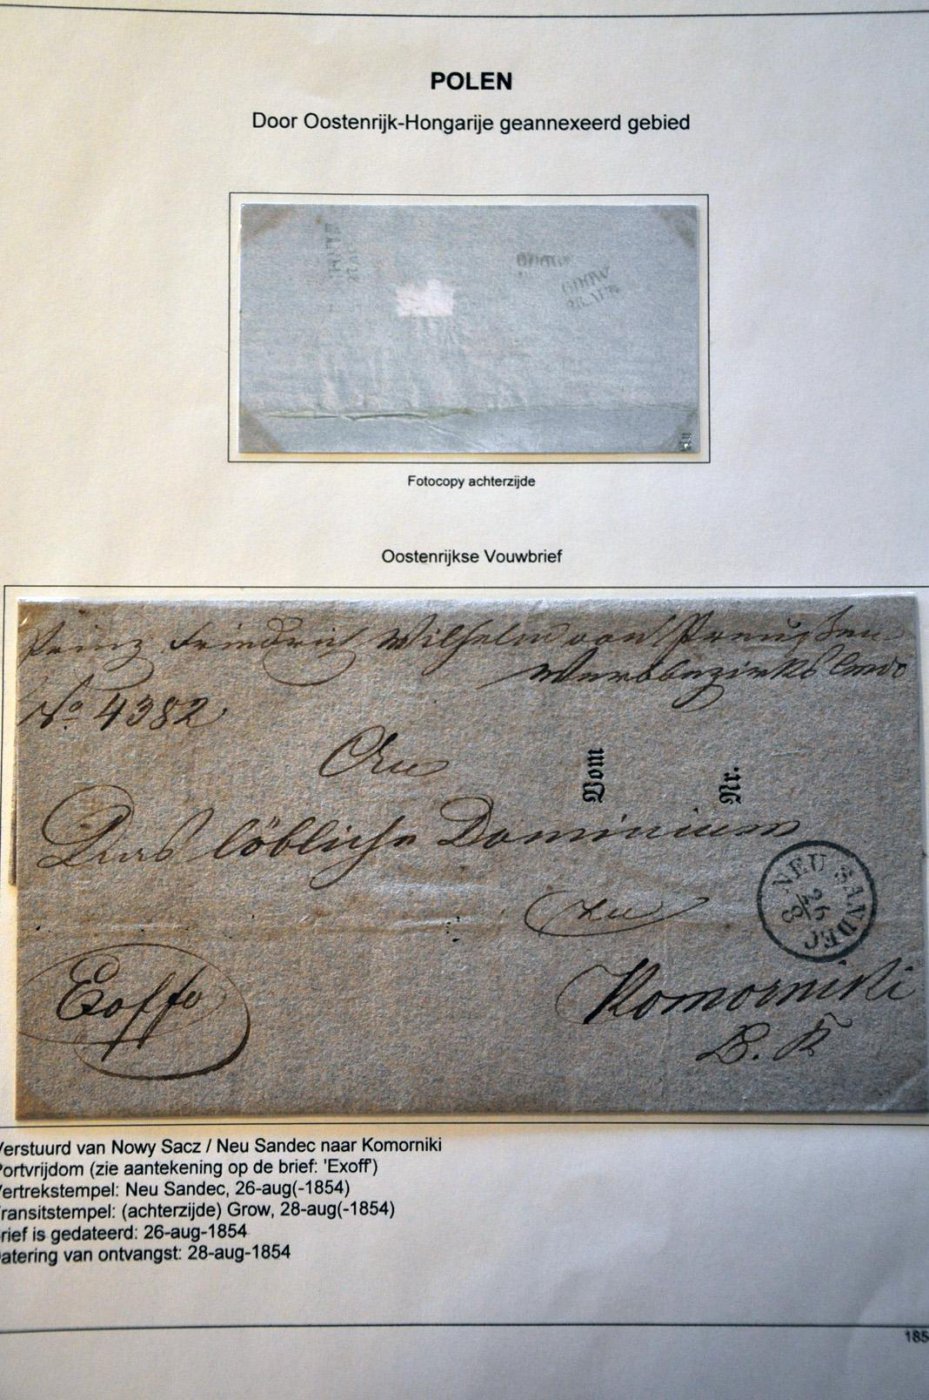 POLEN
Door Oostenrijk-Hongarije geannexeerd gebied
GDOW
GDOW
Fotocopy achterzijde
Oostenrijkse Vouwbrief
Prinz Friedrich Wilhelm von Preußen
Werbbezirks Comdo
No. 4382
An
Vom
Nr.
Das löbliche Dominium
NEU SANDEC
26
8
zu
Exoffo
Komorniki
B. K
Verstuurd van Nowy Sacz / Neu Sandec naar Komorniki
Portvrijdom (zie aantekening op de brief: 'Exoff')
Vertrekstempel: Neu Sandec, 26-aug(-1854)
Transitstempel: (achterzijde) Grow, 28-aug(-1854)
rief is gedateerd: 26-aug-1854
atering van ontvangst: 28-aug-1854
185